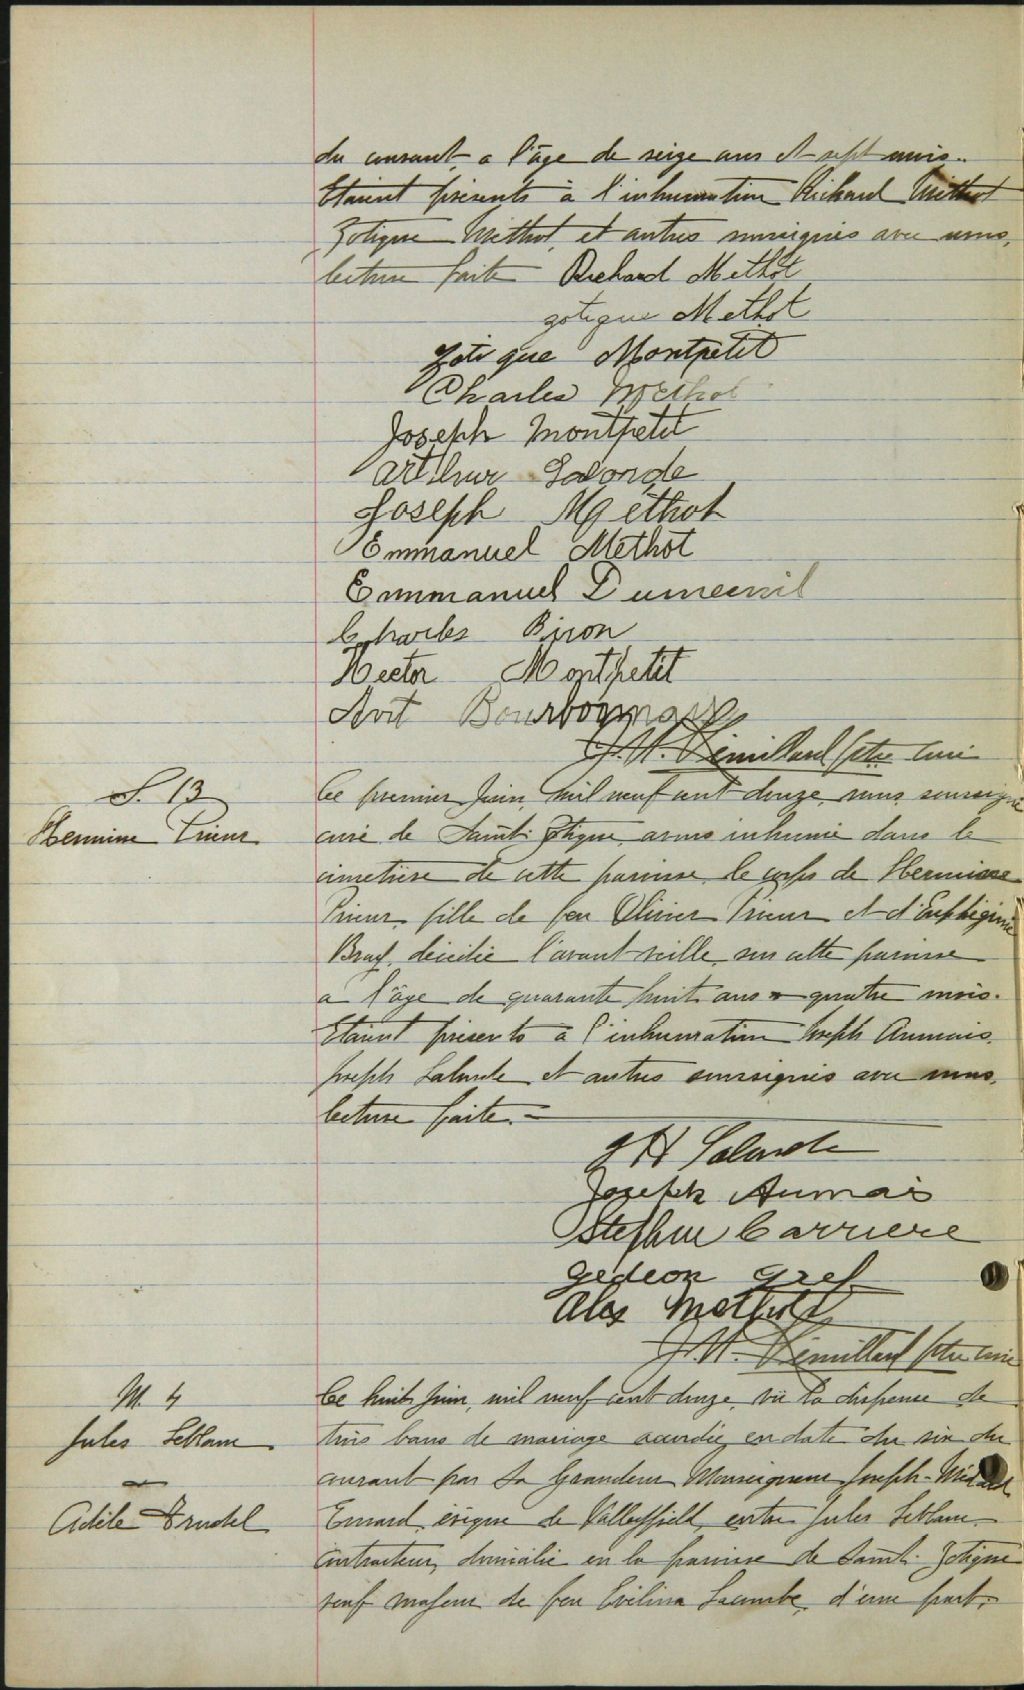 du courant a l'âge de seize ans et sept mois..
Etaient présents à l'inhumation Richard Methot
Zotique Methot, et autres soussignés avec nous,
lecture faite Richard Methot
zotique Methot
Zotique Montpetit
Charles Methot
Joseph Montpetit
arthur Lalonde
Joseph Méthot
Emmanuel Méthot
Emmanuel Dumesnil
Charles Biron
Hector Montpetit
Avit Bourbonnais
J. A. Rémillard ptre curé
S. 13
Hermine Prieur
Ce premier Juin, mil neuf cent douze, nous soussigné
curé de Saint-Zotique avons inhumé dans le
cimetière de cette paroisse, le corps de Hermine
Prieur, fille de feu Olivier Prieur et d'Euphégénie
Bray, décédée l'avant-veille, en cette paroisse
a l'âge de quarante huit ans & quatre mois.
Etaient présents à l'inhumation Joseph Aumais,
Joseph Lalonde et autres soussignés avec nous,
lecture faite. =
J H Lalonde
Joseph Aumais
Stephen Carriere
Gedeon Gref
Alex Methot
J. A. Rémillard ptre curé
M. 4
Jules Leblanc
—
Adèle Trudel
Ce huit Juin, mil neuf cent douze, vu la dispense de
trois bans de mariage accordée en date du six du
courant par Sa Grandeur Monseigneur Joseph-Médard
Emard, évêque de Valleyfield, entre Jules Leblanc
contracteur, domicilié en la paroisse de Saint-Zotique
veuf majeur de feu Evélina Lacombe, d'une part,